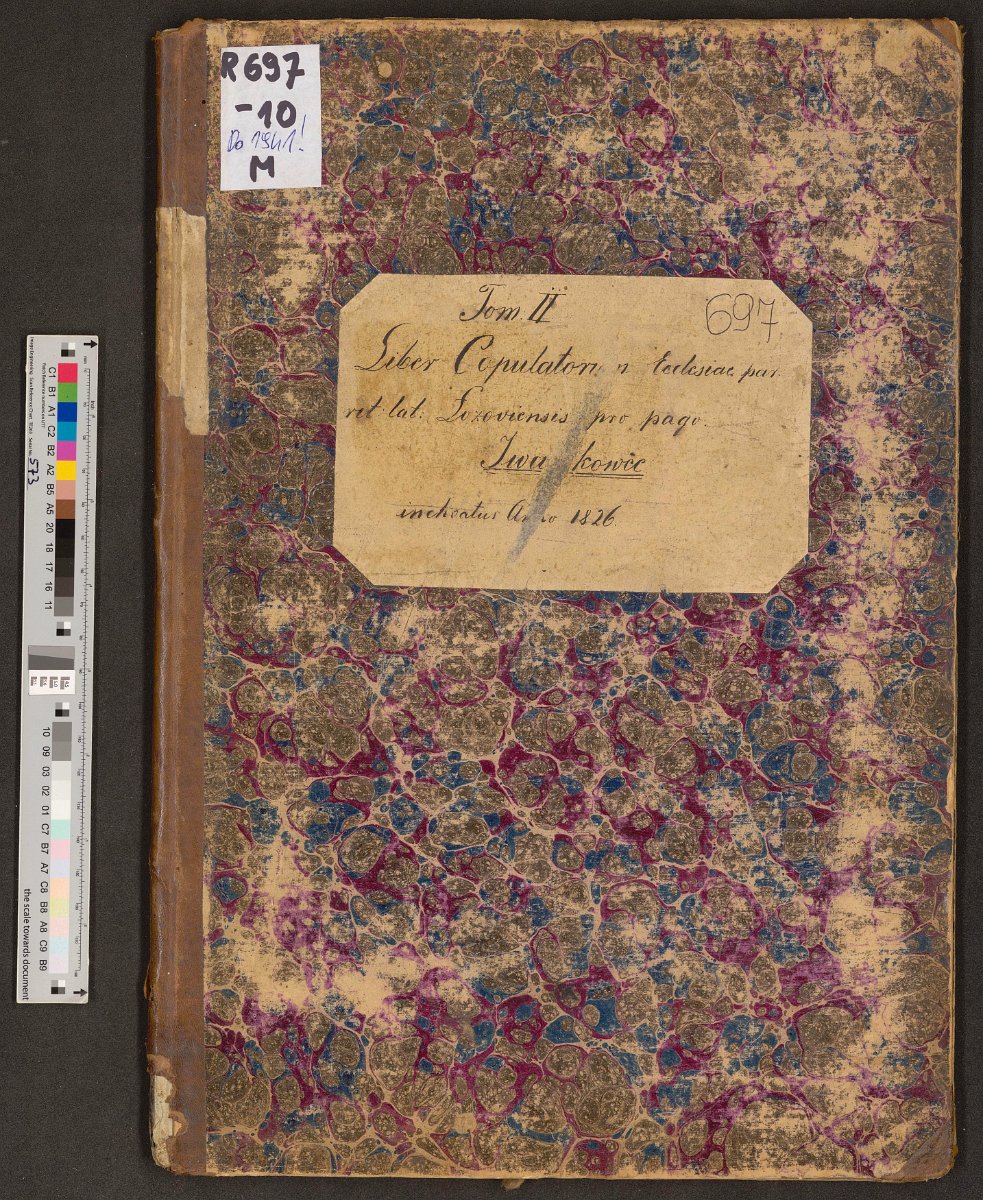 R697
-10
Do 1941!
M
Tom. II
697
Liber Copulatorum Ecclesiae par.
rit. lat: Łozoviensis pro pago.
Iwaczkowce
inchoatus Anno 1826.
573
the scale towards document
C1 B1 A1 C2 B2 A2 B5 A5 20 18 17 16 11
10 09 03 02 01 C7 B7 A7 C8 B8 A8 C9 B9